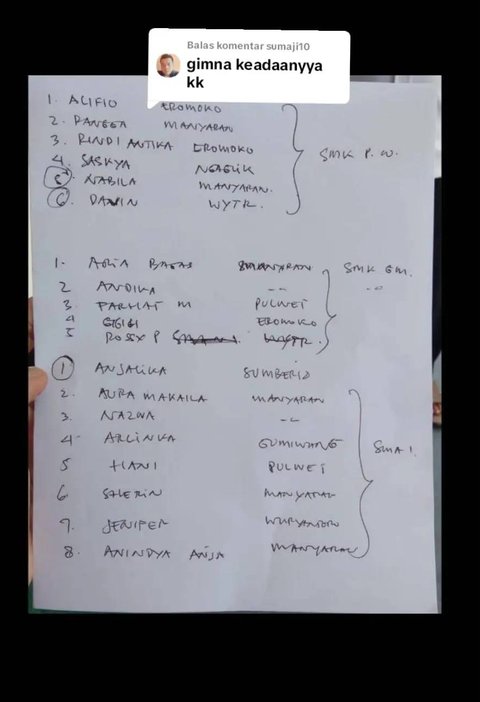 Balas komentar sumaji10
gimna keadaanyya
kk
1. ALIFIO EROMOKO
2. RANGGA MANYARAN
3. RINDI ANTIKA EROMOKO
4. SASKYA NGAGLIK
5 NABILA MANYARAN.
6. DANIN WYTR.
SMK P. W.
1. BAGAS MANYARAN
2 ANDIKA --
3. FARHAT M PULWET
4 GIGI EROMOKO
5 ROSSY P
SMK GM.
--
1 ANJALIKA
2. AURA MAKAILA MANYARAN
3. NAZWA --
4. ARLINKA GUMIWANG
5 HANI PULWET
6. SHERIN MANYARAN
7. JENIFER
8. ANINDYA ANJA MANYARAN
SMA 1.